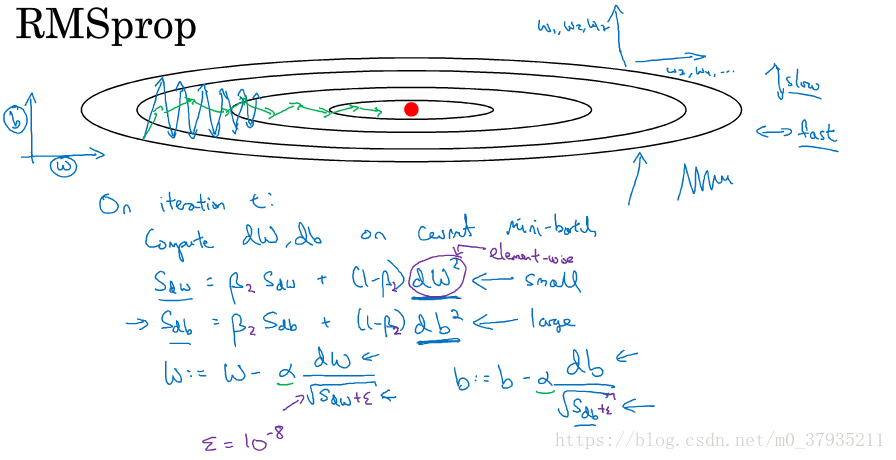 RMSprop
w₁, w₂, w₂
w₃, w₄, ...
↕ slow
↔ fast
b
w
On iteration t:
Compute dW, db on current mini-batch
element-wise
S_dw = β₂ S_dw + (1-β₂) dW² ← small
→ S_db = β₂ S_db + (1-β₂) db² ← large
W := W - α dW / √(S_dw + ε) ←
b := b - α db / √(S_db + ε) ←
ε = 10⁻⁸
https://blog.csdn.net/m0_37935211